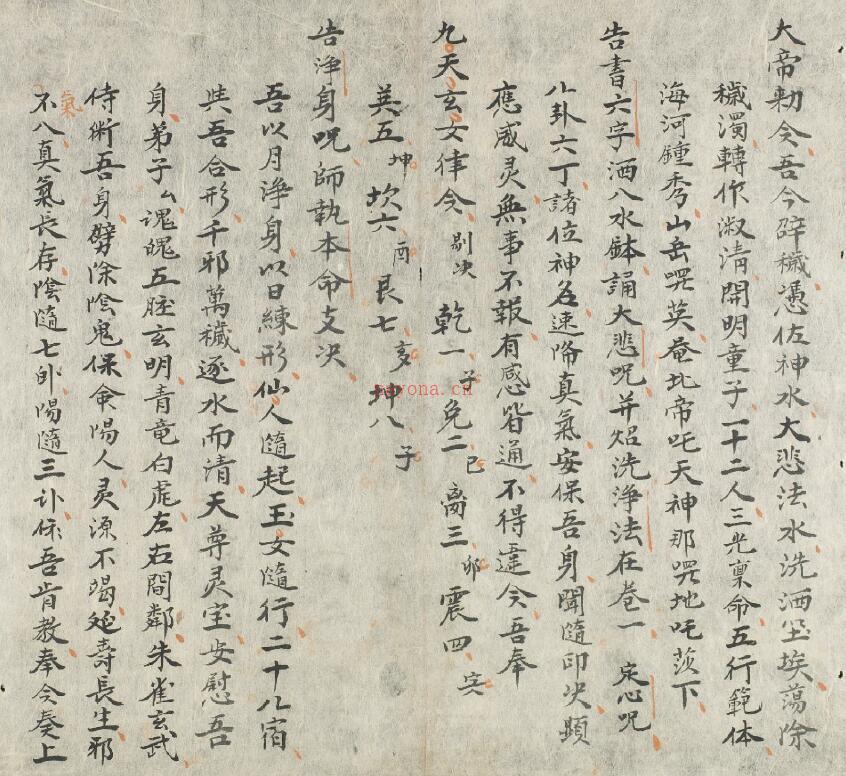 大帝勅令吾今辟穢憑佐神水大悲法水洗洒尘埃蕩除
穢濁轉作淑清開明童子一十二人三光稟命五行範体
海河鍾秀山岳咒英菴北帝吒天神那咒地吒莎下
告書六字洒八水鉢誦大悲咒并炤洗浄法在卷一 定心咒
八卦六丁諸位神各速降真氣安保吾身聞隨印决顕
應感灵無事不報有感皆通不得違令吾奉
九天玄女律令 别决 乾一子 兌二巳 离三卯 震四寅
巽五坤 坎六酉 艮七亥 坤八子
告浄身咒師執本命支决
吾以月浄身以日練形仙人隨起玉女隨行二十八宿
共吾合形千邪萬穢逐水而清天尊灵宝安慰吾
身弟子厶魂魄五胜玄明青竜白虎左右閻鄰朱雀玄武
侍衛吾身劈除陰鬼保命陽人灵源不竭延壽長生邪
氣不入真氣長存陰隨七外陽隨三 吾肯教奉令奏上
nayona.cn